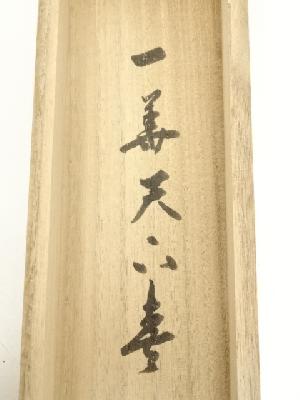 一華天下春